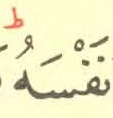 ط
نَفْسَهُ